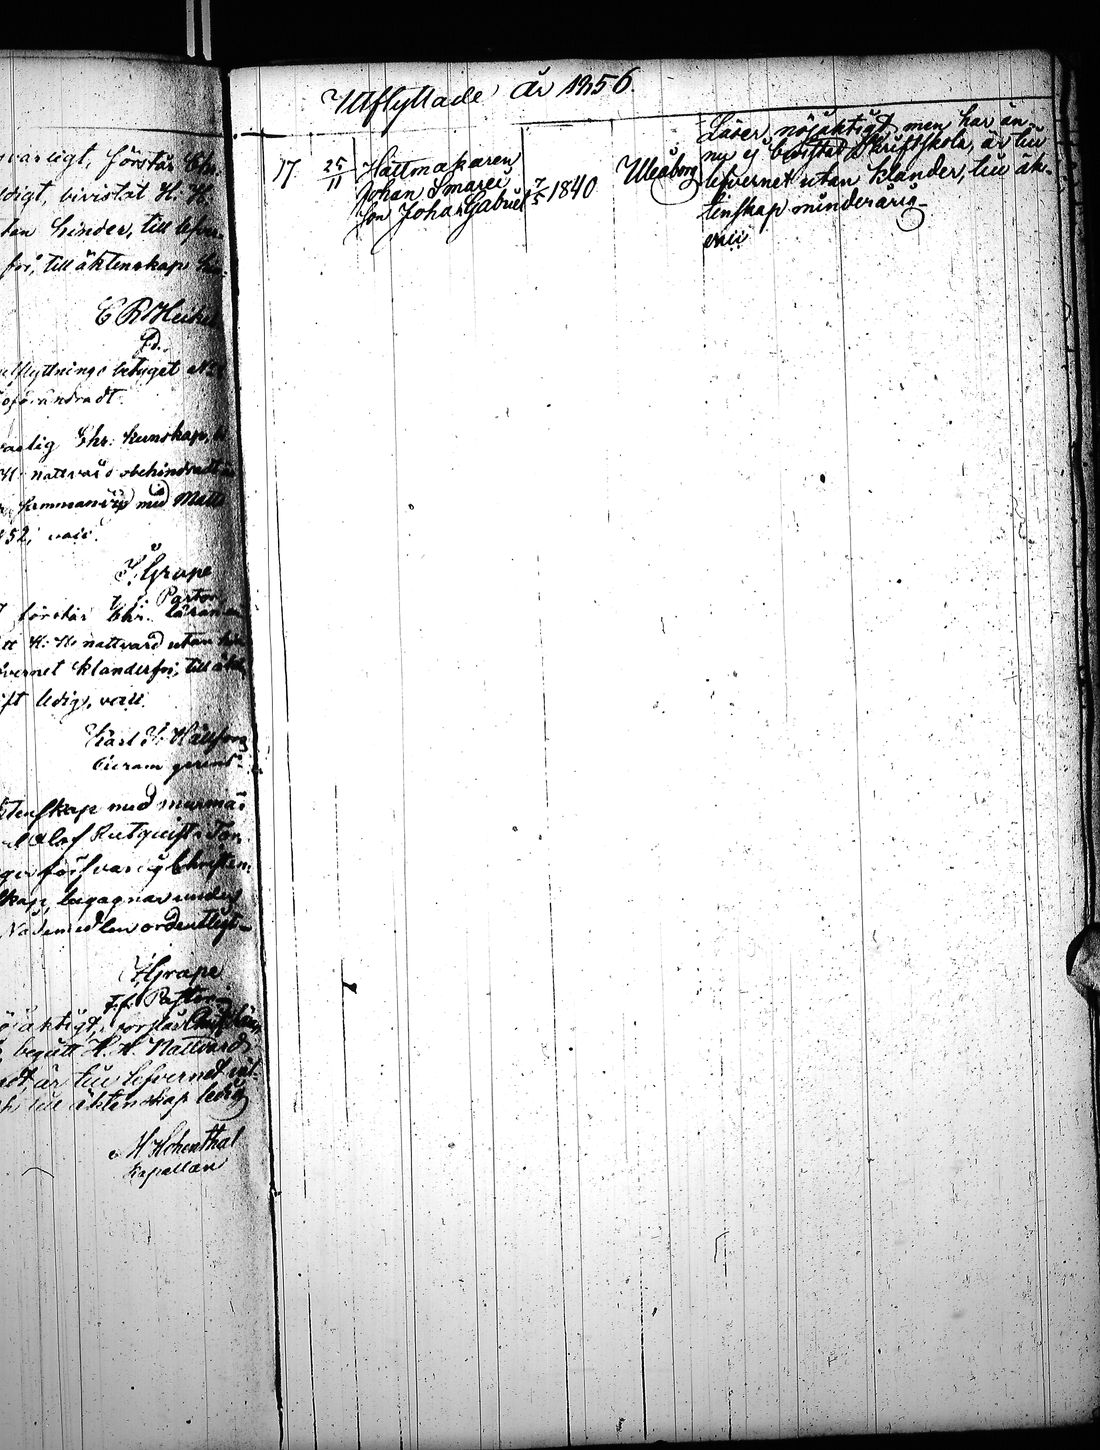 svarligt, förstår Chr.
ldigt, bivistat H. H.
tan hinder, till lefver-
fri, till äktenskap
C R Heikel
Pd.
utflyttnings betyget No
oförändradt.
svarlig Chr. kunskap,
H. nattvard obehindradt
sammanvigd med Matts
52, vari.
I. Grape
t. f. Pastor
förstår Chr. läran
tt H. H. nattvard utan
vernet klanderfri, till äkt
ift ledig, vari.
Karl J. Hällfors
Vicram gerens.
ktenskap med murma:
Olof Rutqvist
ger försvarlig Christen:
skap, begagnar
Nådemedlen ordentligt
I Grape
T. f. Pastor
öjaktigt, förstår
begått H. H. Nattvard
är till lefvernet
till äktenskap ledig
M Hohenthal
Kapellan
Utflyttade år 1856.
17. 25/11 Hattmakaren
Johan
Son Johan Gabriel 7/5 1840
Uleåborg
Läser nöjaktigt men har än-
nu ej bevistat Skriftskola, är till
lefvernet utan klander, till äk-
tenskap minderårig.